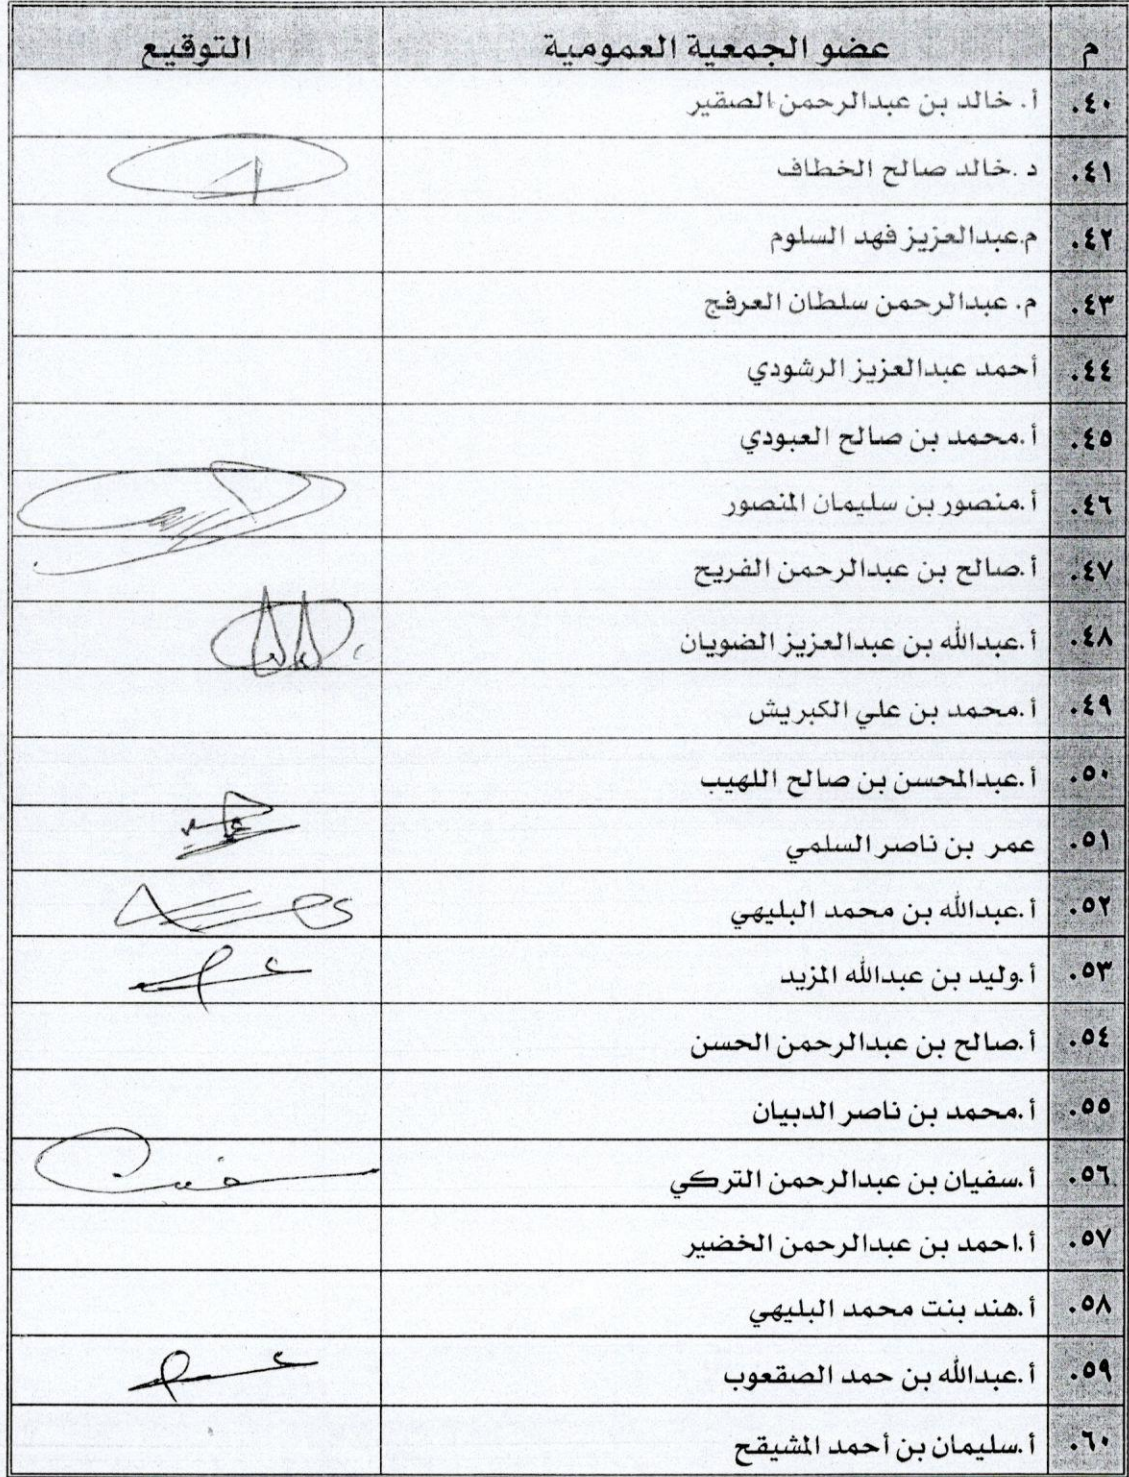 م عضو الجمعية العمومية التوقيع
.٤٠ أ. خالد بن عبدالرحمن الصقير
.٤١ د .خالد صالح الخطاف
.٤٢ م.عبدالعزيز فهد السلوم
.٤٣ م. عبدالرحمن سلطان العرفج
.٤٤ أحمد عبدالعزيز الرشودي
.٤٥ أ.محمد بن صالح العبودي
.٤٦ أ.منصور بن سليمان المنصور
.٤٧ أ.صالح بن عبدالرحمن الفريح
.٤٨ أ.عبدالله بن عبدالعزيز الضويان
.٤٩ أ.محمد بن علي الكبريش
.٥٠ أ.عبدالمحسن بن صالح اللهيب
.٥١ عمر بن ناصر السلمي
.٥٢ أ.عبدالله بن محمد البليهي
.٥٣ أ.وليد بن عبدالله المزيد
.٥٤ أ.صالح بن عبدالرحمن الحسن
.٥٥ أ.محمد بن ناصر الدبيان
.٥٦ أ.سفيان بن عبدالرحمن التركي
.٥٧ أ.احمد بن عبدالرحمن الخضير
.٥٨ أ.هند بنت محمد البليهي
.٥٩ أ.عبدالله بن حمد الصقعوب
.٦٠ أ.سليمان بن أحمد المشيقح